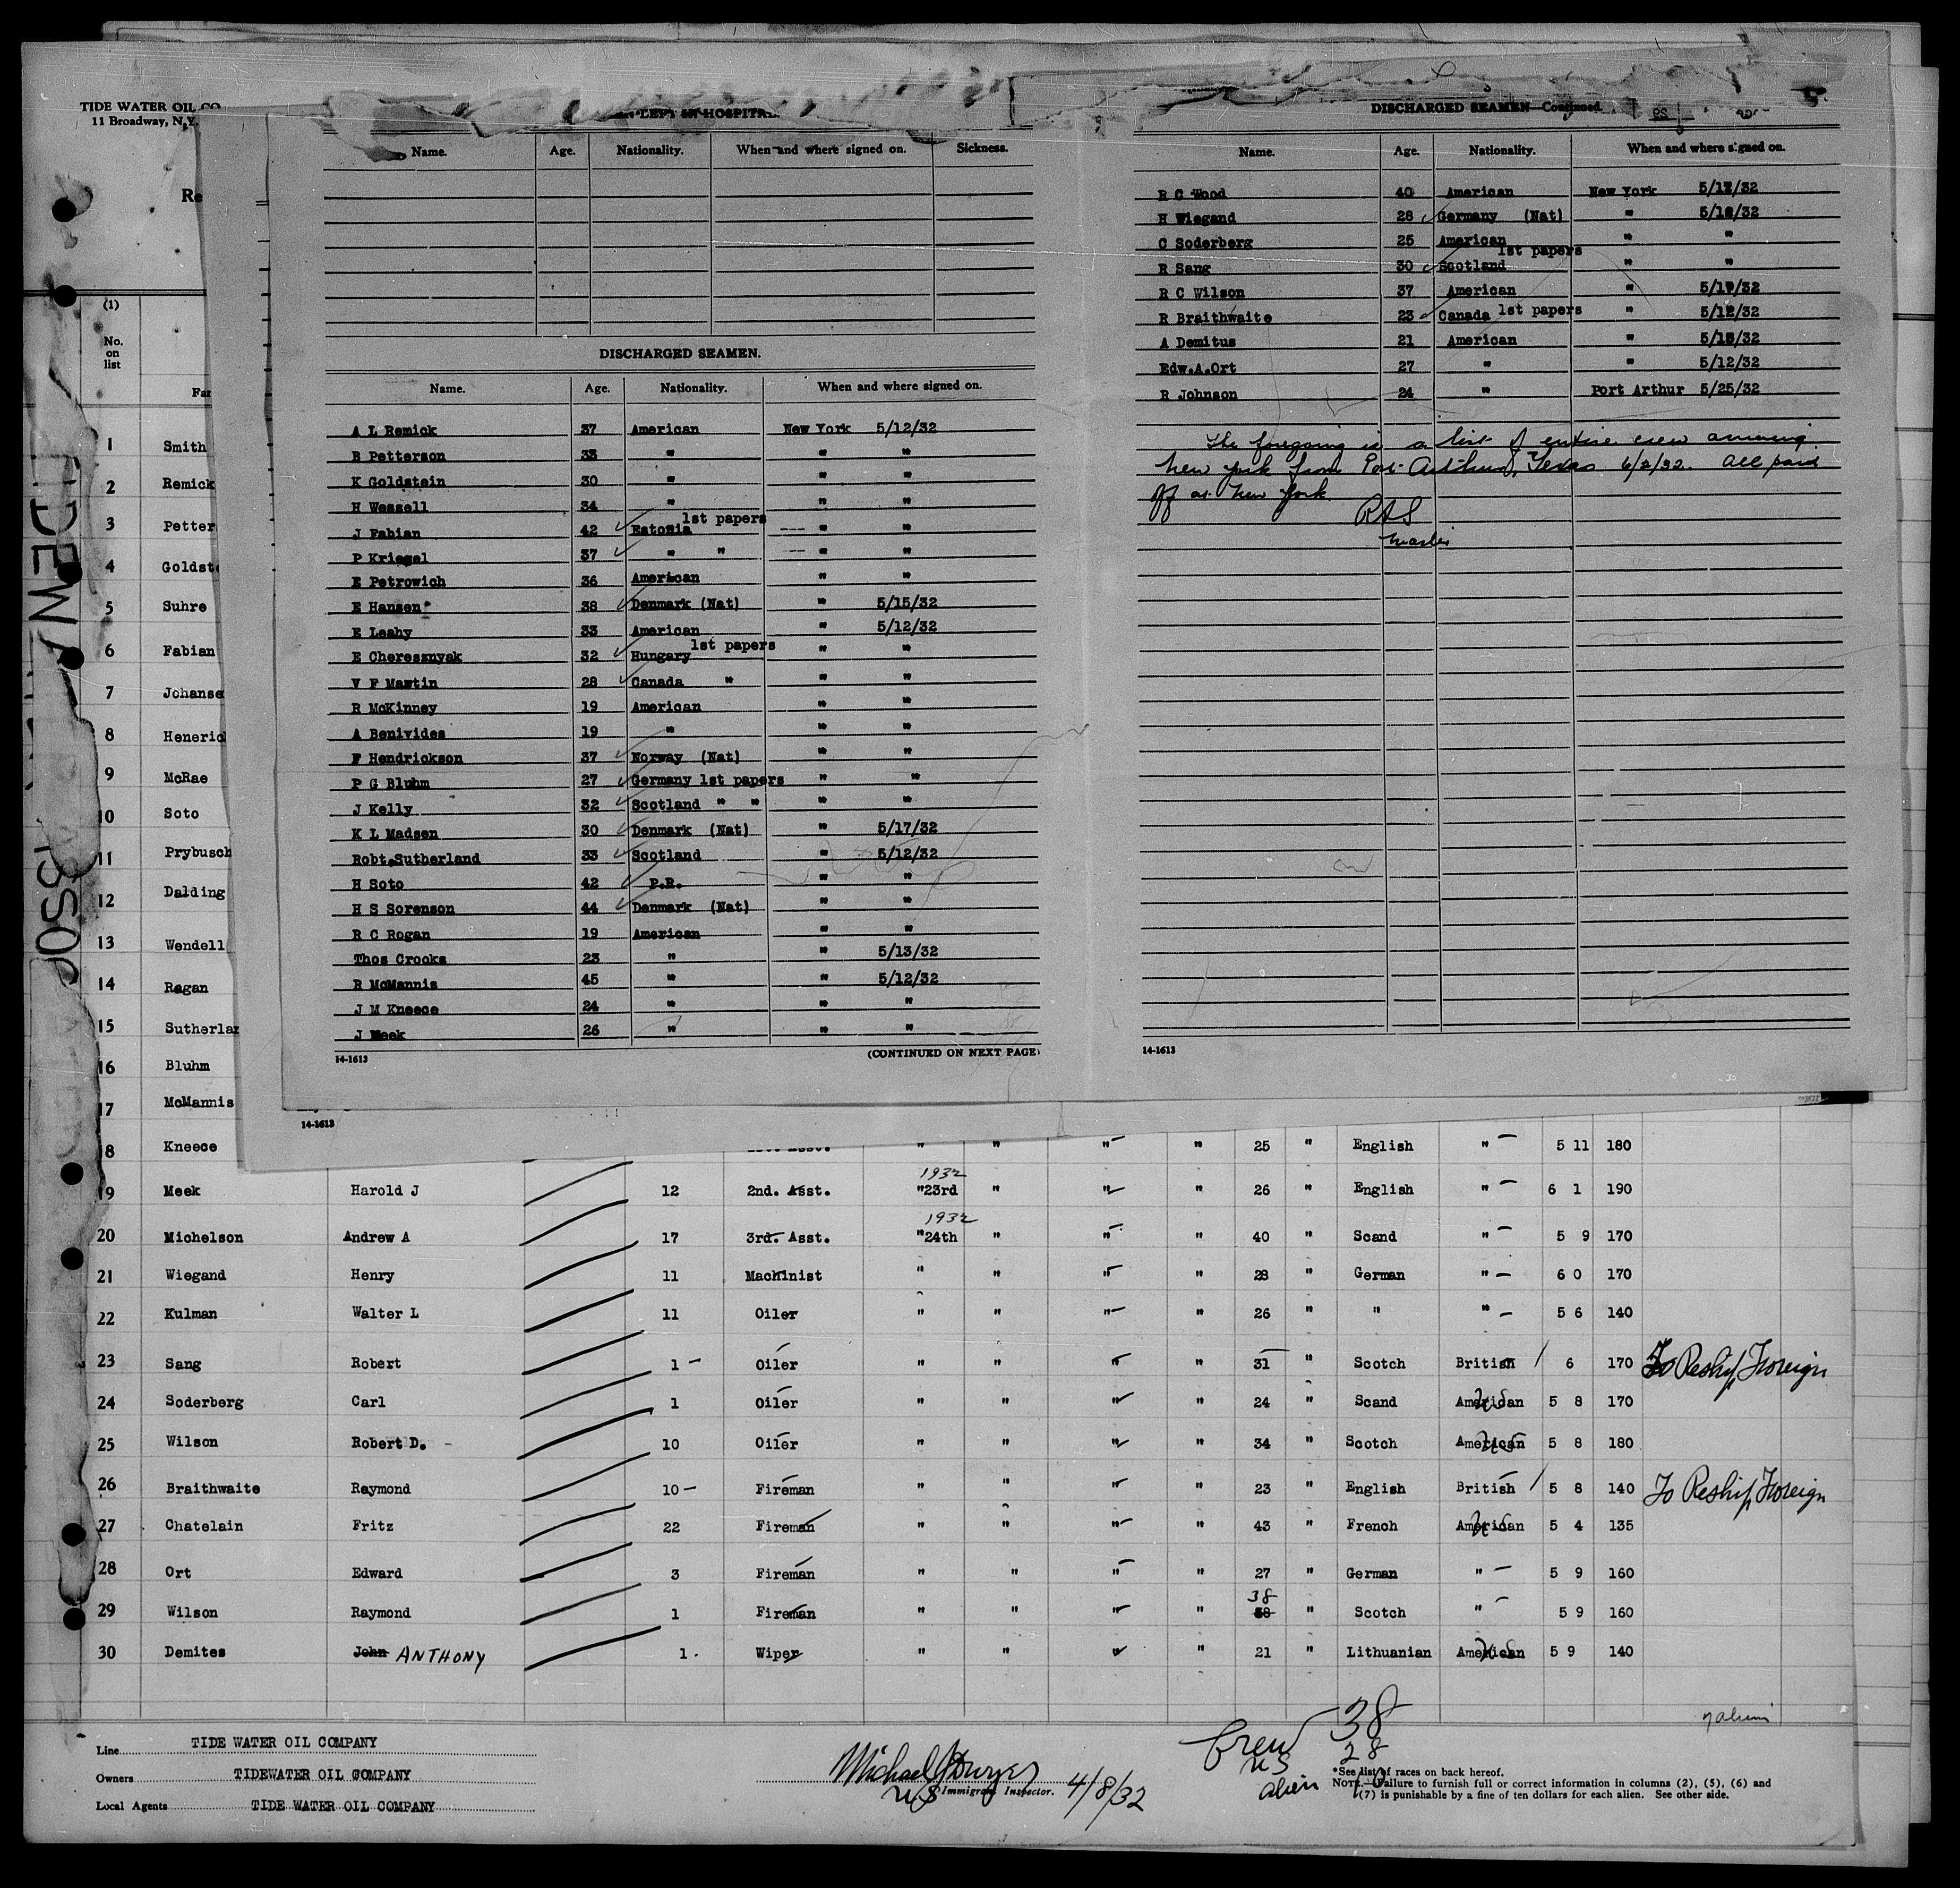 TIDE WATER OIL CO
11 Broadway, N.Y.
LEFT IN HOSPITAL
Name. Age. Nationality. When and where signed on. Sickness.
DISCHARGED SEAMEN.
Name. Age. Nationality. When and where signed on.
A L Remick 37 American New York 5/12/32
B Petterson 33 " " "
K Goldstein 30 " " "
H Wessell 34 " " "
J Fabian 42 Estonia 1st papers " "
P Kriegel 37 " " " "
E Petrowich 36 American " "
E Hansen 38 Denmark (Nat) " 5/15/32
E Leahy 33 American " 5/12/32
E Cheresznyak 32 Hungary 1st papers " "
V F Mawtin 28 Canada " " "
R McKinney 19 American " "
A Benivides 19 " " "
F Hendrickson 37 Norway (Nat) " "
P G Bluhm 27 Germany 1st papers " "
J Kelly 32 Scotland " " " "
K L Madsen 30 Denmark (Nat) " 5/17/32
Robt.Sutherland 33 Scotland " 5/12/32
H Soto 42 P.R. " "
H S Sorenson 44 Denmark (Nat) " "
R C Rogan 19 American " "
Thos Crooks 23 " " 5/13/32
R McMannis 45 " " 5/12/32
J M Kneece 24 " " "
J Meek 26 " " "
14-1613 (CONTINUED ON NEXT PAGE)
14-1613
DISCHARGED SEAMEN—Continued.
Name. Age. Nationality. When and where signed on.
R C Wood 40 American New York 5/12/32
H Wiegand 28 Germany (Nat) " 5/12/32
C Soderberg 25 American " "
R Sang 30 Scotland 1st papers " "
R C Wilson 37 American " 5/17/32
R Braithwaite 23 Canada 1st papers " 5/12/32
A Demitus 21 American " 5/13/32
Edw.A.Ort 27 " " 5/12/32
R Johnson 24 " Port Arthur 5/25/32
The foregoing is a list of entire crew arriving
New York from Port Arthur, Texas 6/2/32. All paid
off at New York.
RAS
Master
14-1613
(1)
No. on list
1 Smith
2 Remick
3 Petter
4 Goldst
5 Suhre
6 Fabian
7 Johanse
8 Heneric
9 McRae
10 Soto
11 Prybusch
12 Dalding
13 Wendell
14 Ragan
15 Sutherlan
16 Bluhm
17 McMannis
8 Kneece " " " " 25 " English " 5 11 180
19 Meek Harold J 12 2nd. Asst. 1932 "23rd " " " 26 " English " 6 1 190
20 Michelson Andrew A 17 3rd. Asst. 1932 "24th " " " 40 " Scand " 5 9 170
21 Wiegand Henry 11 Machinist " " " " 28 " German " 6 0 170
22 Kulman Walter L 11 Oiler " " " " 26 " " " 5 6 140
23 Sang Robert 1 Oiler " " " " 31 " Scotch British 6 170 To Reship Foreign
24 Soderberg Carl 1 Oiler " " " " 24 " Scand American US 5 8 170
25 Wilson Robert D. 10 Oiler " " " " 34 " Scotch American US 5 8 180
26 Braithwaite Raymond 10 Fireman " " " " 23 " English British 5 8 140 To Reship Foreign
27 Chatelain Fritz 22 Fireman " " " " 43 " French American US 5 4 135
28 Ort Edward 3 Fireman " " " " 27 " German " 5 9 160
29 Wilson Raymond 1 Fireman " " " " 38 38 " Scotch " 5 9 160
30 Demites John ANTHONY 1. Wiper " " " " 21 " Lithuanian American US 5 9 140
Line TIDE WATER OIL COMPANY
Owners TIDEWATER OIL COMPANY
Local Agents TIDE WATER OIL COMPANY
Michael J Dwyer
US Immigrant Inspector. 4/8/32
Crew 38
US 28
Alien 10
*See list of races on back hereof.
NOTE.—Failure to furnish full or correct information in columns (2), (5), (6) and
(7) is punishable by a fine of ten dollars for each alien. See other side.